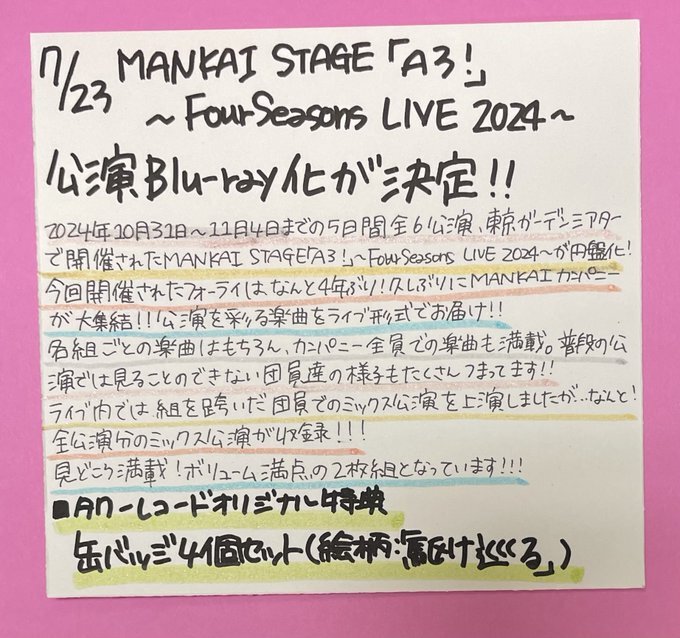 7/23 MANKAI STAGE「A3!」
～Four Seasons LIVE 2024～
公演Blu-ray化が決定!!
2024年10月31日～11月4日までの5日間全6公演、東京ガーデンシアター
で開催されたMANKAI STAGE「A3!」～Four Seasons LIVE 2024～が円盤化!
今回開催されたフォーライはなんと4年ぶり!久しぶりにMANKAIカンパニー
が大集結!!公演を彩る楽曲をライブ形式でお届け!!
各組ごとの楽曲はもちろん、カンパニー全員での楽曲も満載。普段の公
演では見ることのできない団員達の様子もたくさんつまってます!!
ライブ内では組を跨いだ団員でのミックス公演を上演しましたが…なんと!
全公演分のミックス公演が収録!!!
見どころ満載!ボリューム満点の2枚組となっています!!!
■タワーレコードオリジナル特典
缶バッジ4個セット(絵柄:「駆け巡る」)